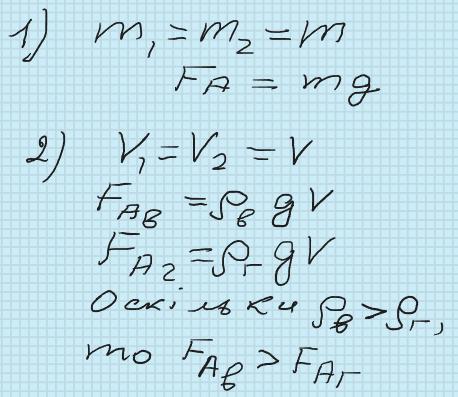 1) m₁ = m₂ = m
FA = mg
2) V₁ = V₂ = V
FAв = ρв g V
FAг = ρг g V
Оскільки ρв > ρг,
то FAв > FAг